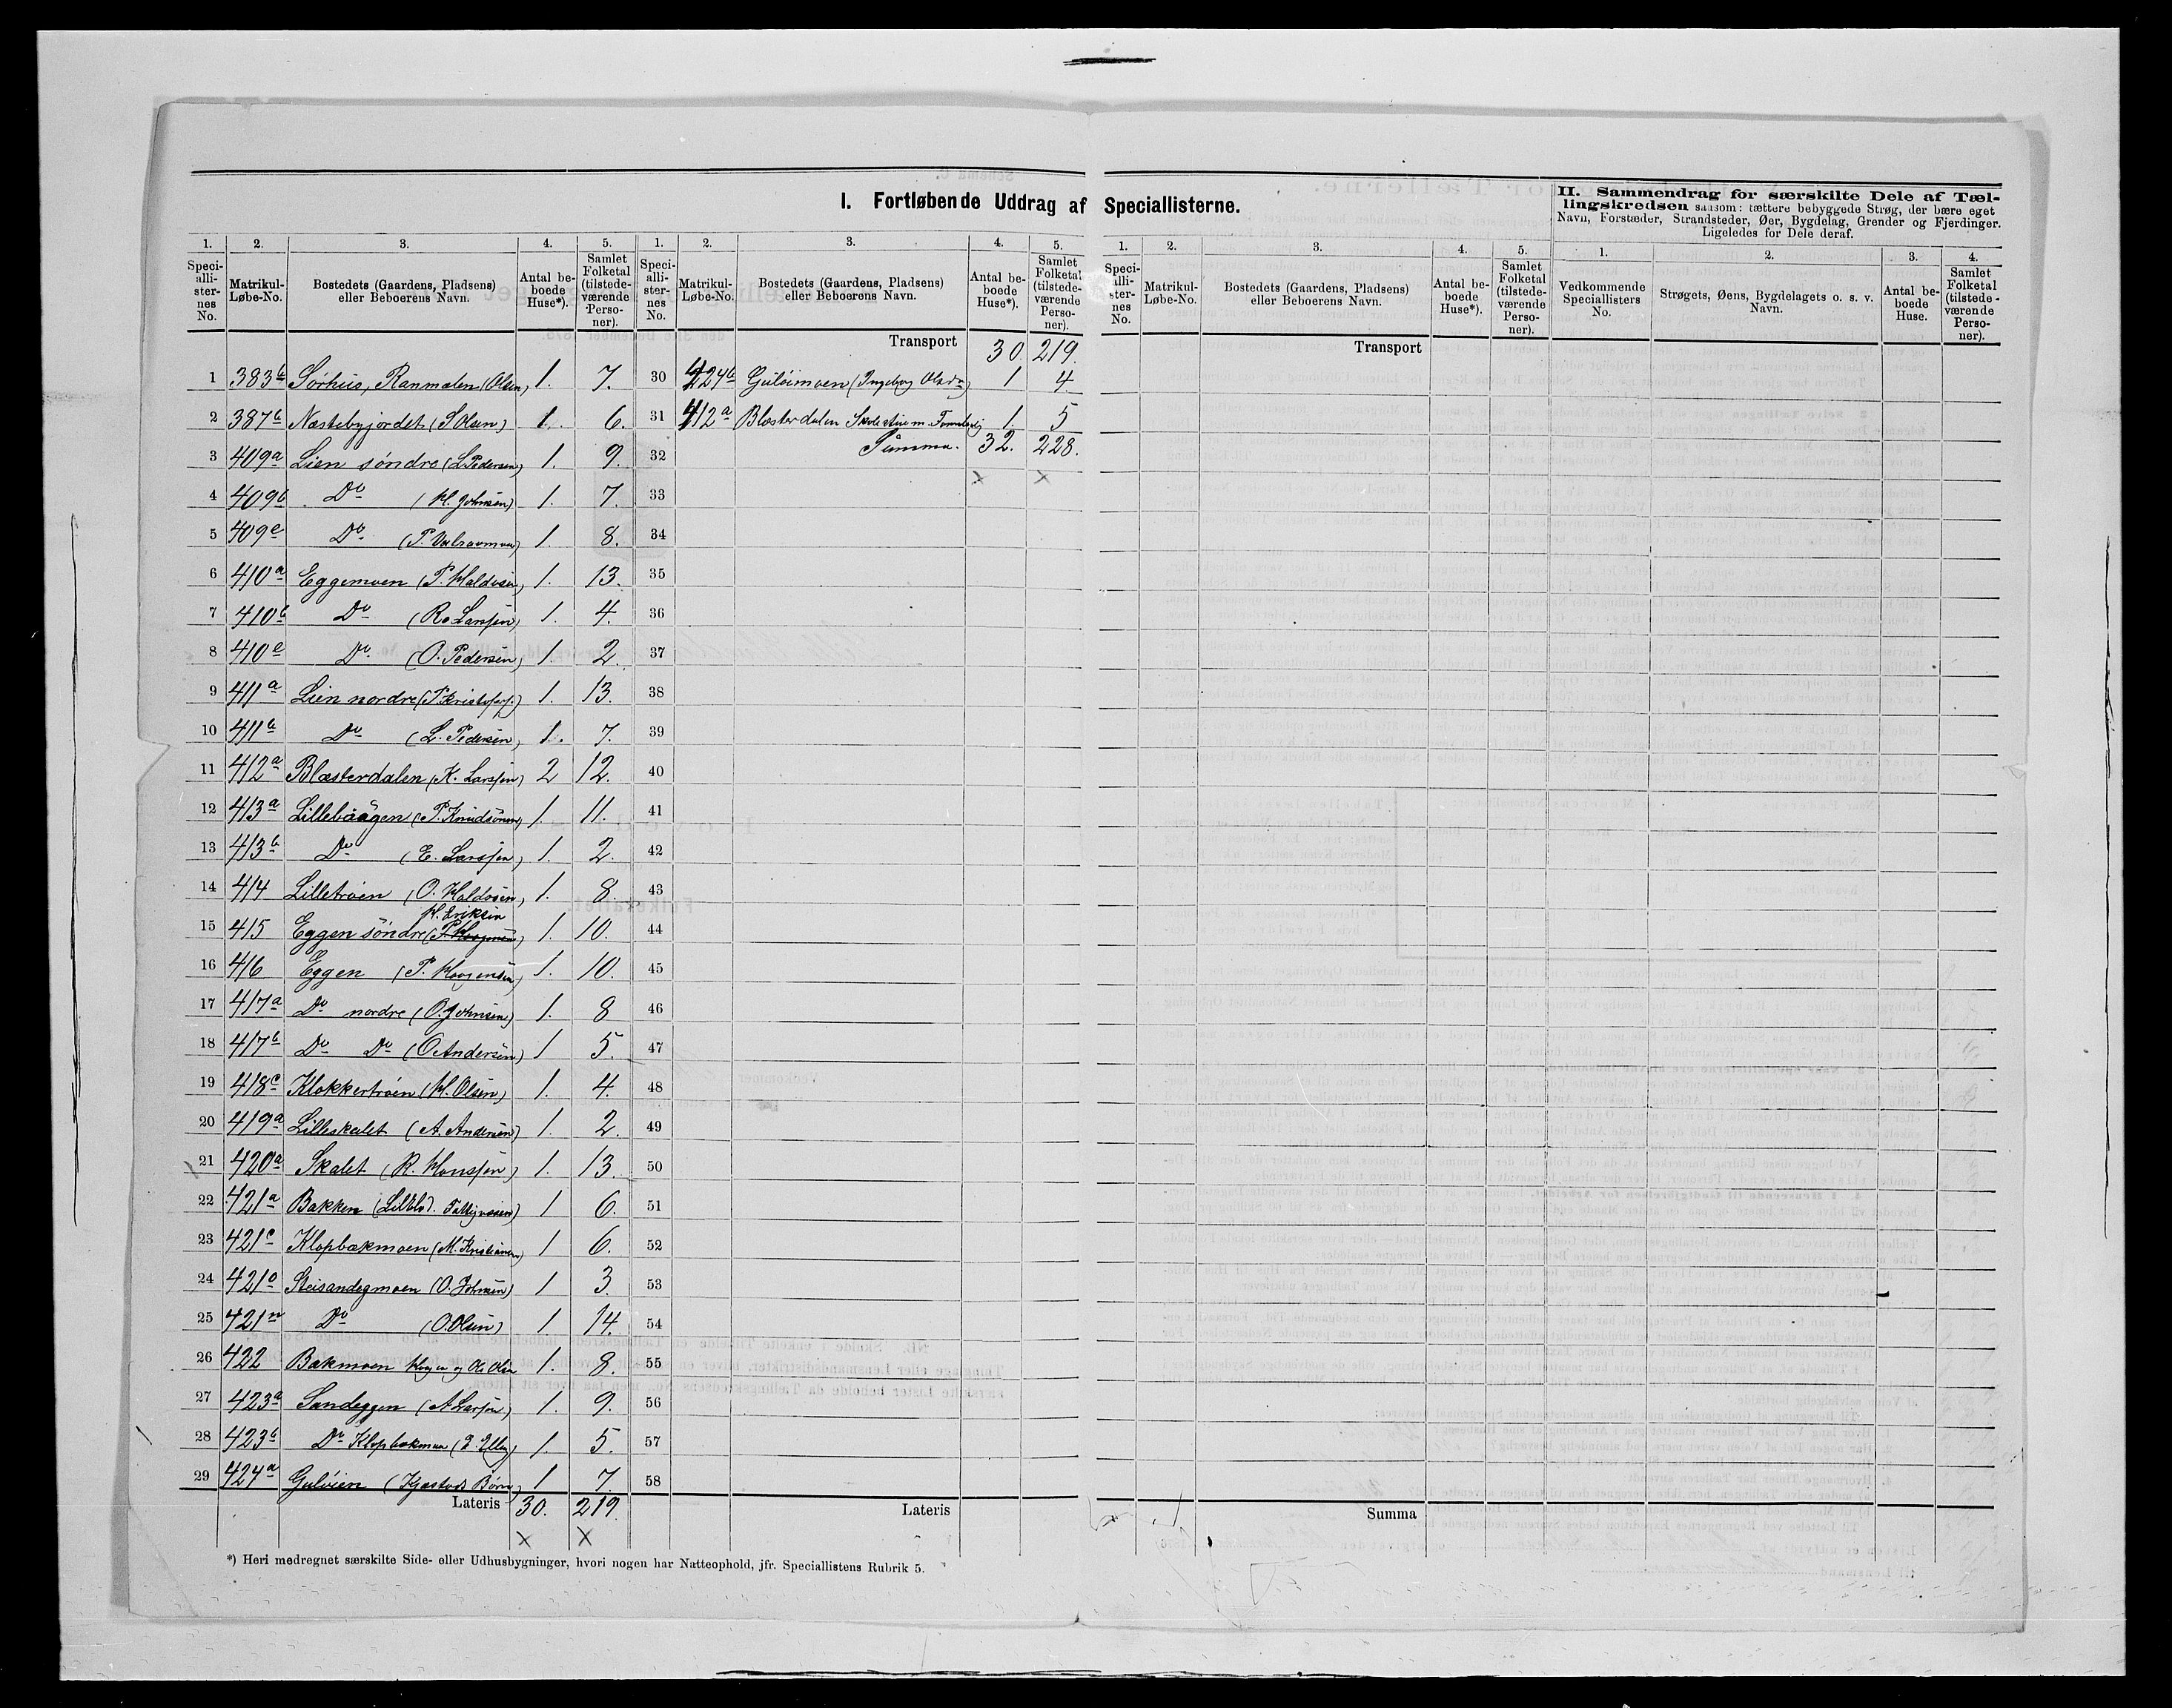 I. Fortløbende Uddrag af Speciallisterne.
II. Sammendrag for særskilte Dele af Tæl-
lingskredsen saasom: tættere bebyggede Strøg, der bære eget
Navn, Forstæder, Strandsteder, Øer, Bygdelag, Grender og Fjerdinger.
Ligeledes for Dele deraf.
1. 2. 3. 4. 5. 1. 2. 3. 4. 5. 1. 2. 3. 4. 5. 1. 2. 3. 4.
Speci-alli-ster-nes No. Matrikul-Løbe-No. Bostedets (Gaardens, Pladsens) eller Beboerens Navn. Antal be-boede Huse*). Samlet Folketal (tilstede-værende Perso-ner).
Speci-alli-ster-nes No. Matrikul-Løbe-No. Bostedets (Gaardens, Pladsens) eller Beboerens Navn. Antal be-boede Huse*). Samlet Folketal (tilstede-værende Perso-ner).
Speci-alli-ster-nes No. Matrikul-Løbe-No. Bostedets (Gaardens, Pladsens) eller Beboerens Navn. Antal be-boede Huse*). Samlet Folketal (tilstede-værende Perso-ner).
Vedkommende Speciallisters No. Strøgets, Øens, Bygdelagets o. s. v. Navn. Antal be-boede Huse. Samlet Folketal (tilstede-værende Perso-ner).
1 383b Sørhus, Ranmalen (Olsen) 1. 7.
2 387b Næstebyjordet (S Olsen) 1. 6.
3 409a Lien søndre (L Pedersen) 1. 9.
4 409b Do (H. Johnsen) 1. 7.
5 409c Do (P. ) 1. 8.
6 410a Eggemoen (P. Haldosen) 1. 13.
7 410b Do (R. Larssen) 1. 4.
8 410c Do (O. Pedersen) 1. 2.
9 411a Lien nordre (P. Kristofers.) 1. 13.
10 411b Do (L. Pedersen) 1. 7.
11 412a Blæsterdalen (K. Larssen) 2 12.
12 413a Lillebaagen (P. Knudsønen) 1. 11.
13 413b Do (E. Larssen) 1. 2.
14 414 Lilletrøen (O. Haldosen) 1. 8.
H. Eriksen
15 415 Eggen søndre 1. 10.
16 416 Eggen (P. Haagensen) 1. 10.
17 417a Do nordre (O. Johnsen) 1. 8
18 417b Do Do (O Andersen) 1 5.
19 418c Klokkertrøen (H. Olsen) 1. 4.
20 419a Lilleskalet (A. Andersen) 1. 2.
21 420a Skalet (R. Hanssen) 1. 13.
22 421a Bakken 1 6.
23 421c Klopbækmoen (M. Kristiansen) 1 6.
24 421o Steisandegmoen (O. Johnsen) 1 3.
25 421n Do (O. Olsen) 1 14.
26 422 Bækmoen og Ole Olsen 1. 8.
27 423a Sandeggen (A Larsen) 1. 9.
28 423b Do Klopbækmoen 1. 5.
29 424a Guløien (Kjøstads Børn) 1 7.
Lateris 30. 219.
X X
Transport 30 219.
30 424b Guløimoen (Ingeborg Olsdr) 1 4.
31 412a Blæsterdalen Skolestue m. 1. 5
32 Summa. 32. 228.
X X
33
34
35
36
37
38
39
40
41
42
43
44
45
46
47
48
49
50
51
52
53
54
55
56
57
58
Lateris
Transport
Summa
*) Heri medregnet særskilte Side- eller Udhusbygninger, hvori nogen har Natteophold, jfr. Speciallistens Rubrik 5.